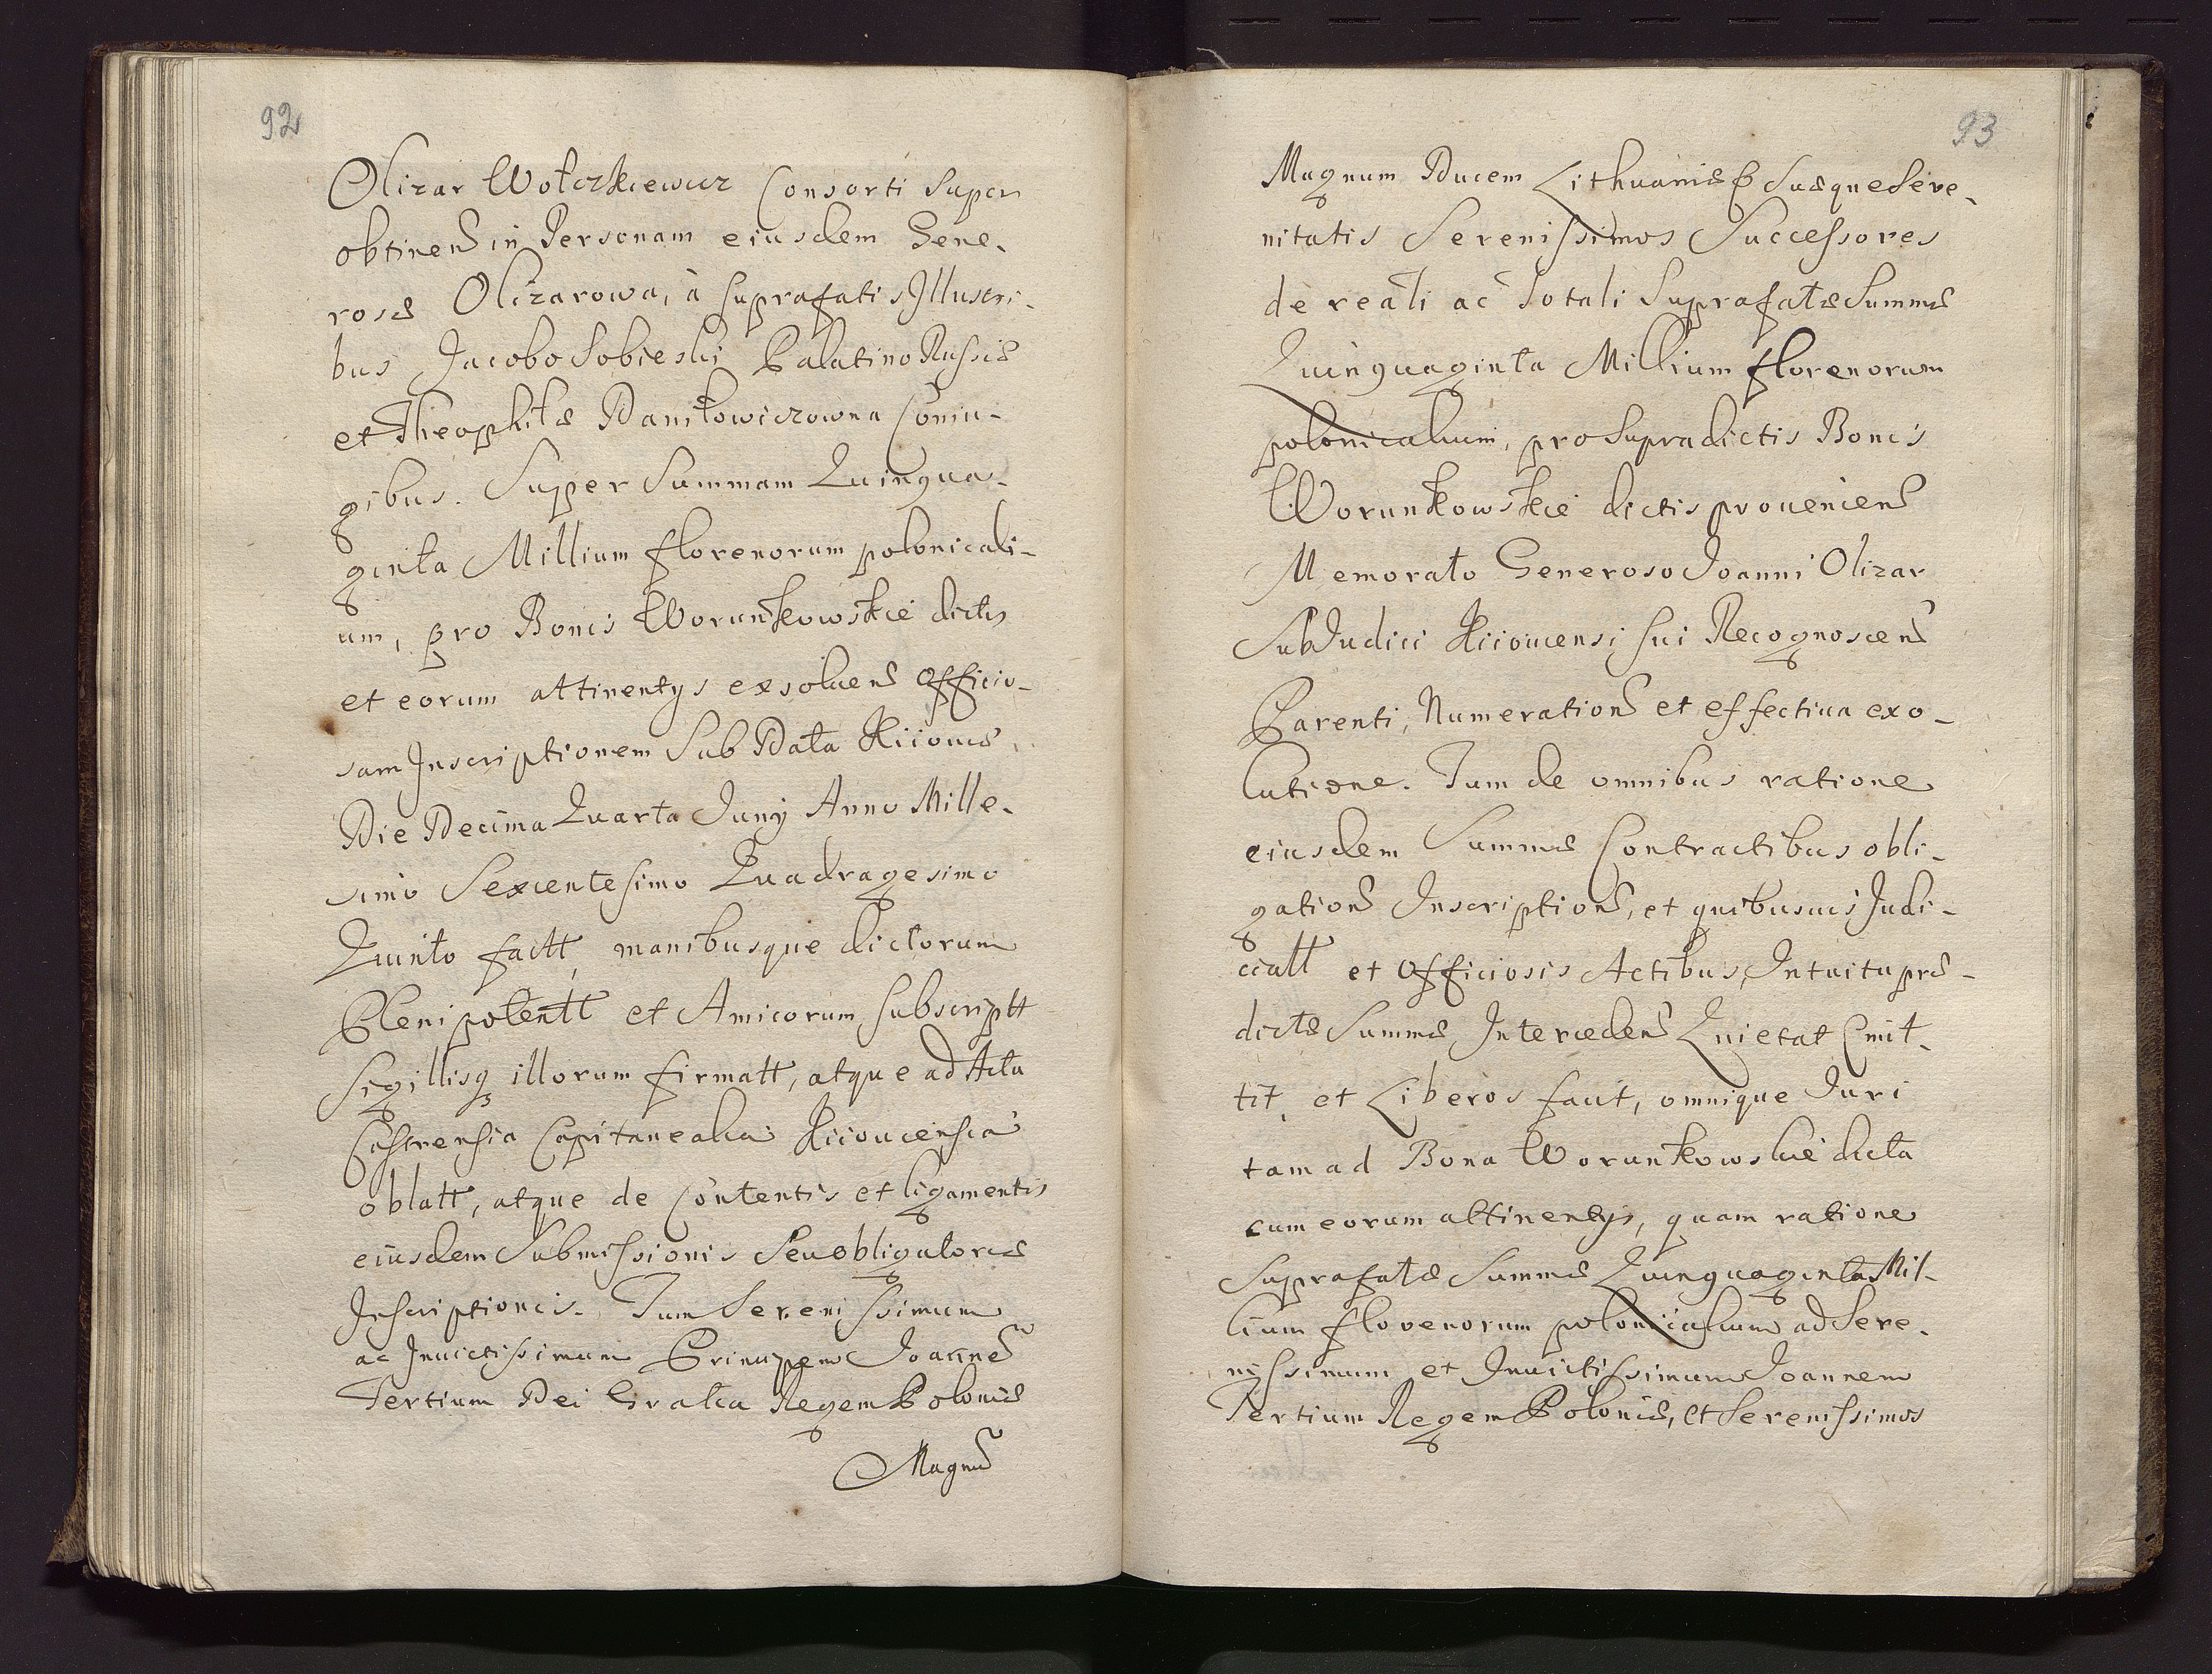 92
Olizar Wołczkiewicz Consorti super
obtinen in Personam eiusdem Gene-
rosæ Olizarowa, à suprafatis Illustri-
bus Jacobo Sobieski Palatino Russiæ
et Theophilæ Daniłowiczowna Coniu-
gibus. Super Summam Quinqua-
ginta Millium florenorum polonicali-
um, pro Bonis Worunkowskie dictis
et eorum attinentys exsoluen officio-
sam Inscriptionem Sub Data Kiioviæ
Die Decima Quarta Juny Anno Mille-
simo Sexcentesimo Quadragesimo
Quinto factt, manibusque dictorum
Plenipotentt et Amicorum subscriptt
sigillisq illorum firmatt, atque ad Acta
Castrensia Capitanealia Kiiouiensia
oblatt, atque de Contentis et ligamentis
eiusdem Submissionis Seu obligatoriæ
Inscriptionis. Tum Serenissimum
ac Inuictissimum Principem Joanne
Tertium Dei Gratia Regem Poloniæ
Magnu
93
Magnum Ducem Lithuaniæ & Suæque Sere-
nitatis Serenissimos Successores
de reali ac totali Suprafatæ Summæ
Quinquaginta Millium florenorum
polonicalium, pro Supradictis Bonis
Worunkowskie dictis prouenien
Memorato Generoso Joanni Olizar
SubJudici Kiiouiensi sui Recognoscen
Parenti, Numeration et effectiua exo-
lutione. Tum de omnibus ratione
eiusdem Summæ Contractibus obli-
gation Inscription, et quibusuis Judi-
ciatt et officiosis Actibus, Intuitu præ-
dictæ Summæ Interceden Quietat Emit-
tit, et Liberos facit, omnique Juri
tam ad Bona Worunkowskie dicta
cum eorum attinentys, quam ratione
Suprafatæ Summæ Quinquaginta Mil-
lium florenorum polonicalium ad Sere-
nissimum et Inuictissimum Joannem
Tertium Regem Poloniæ, et Serenissimos